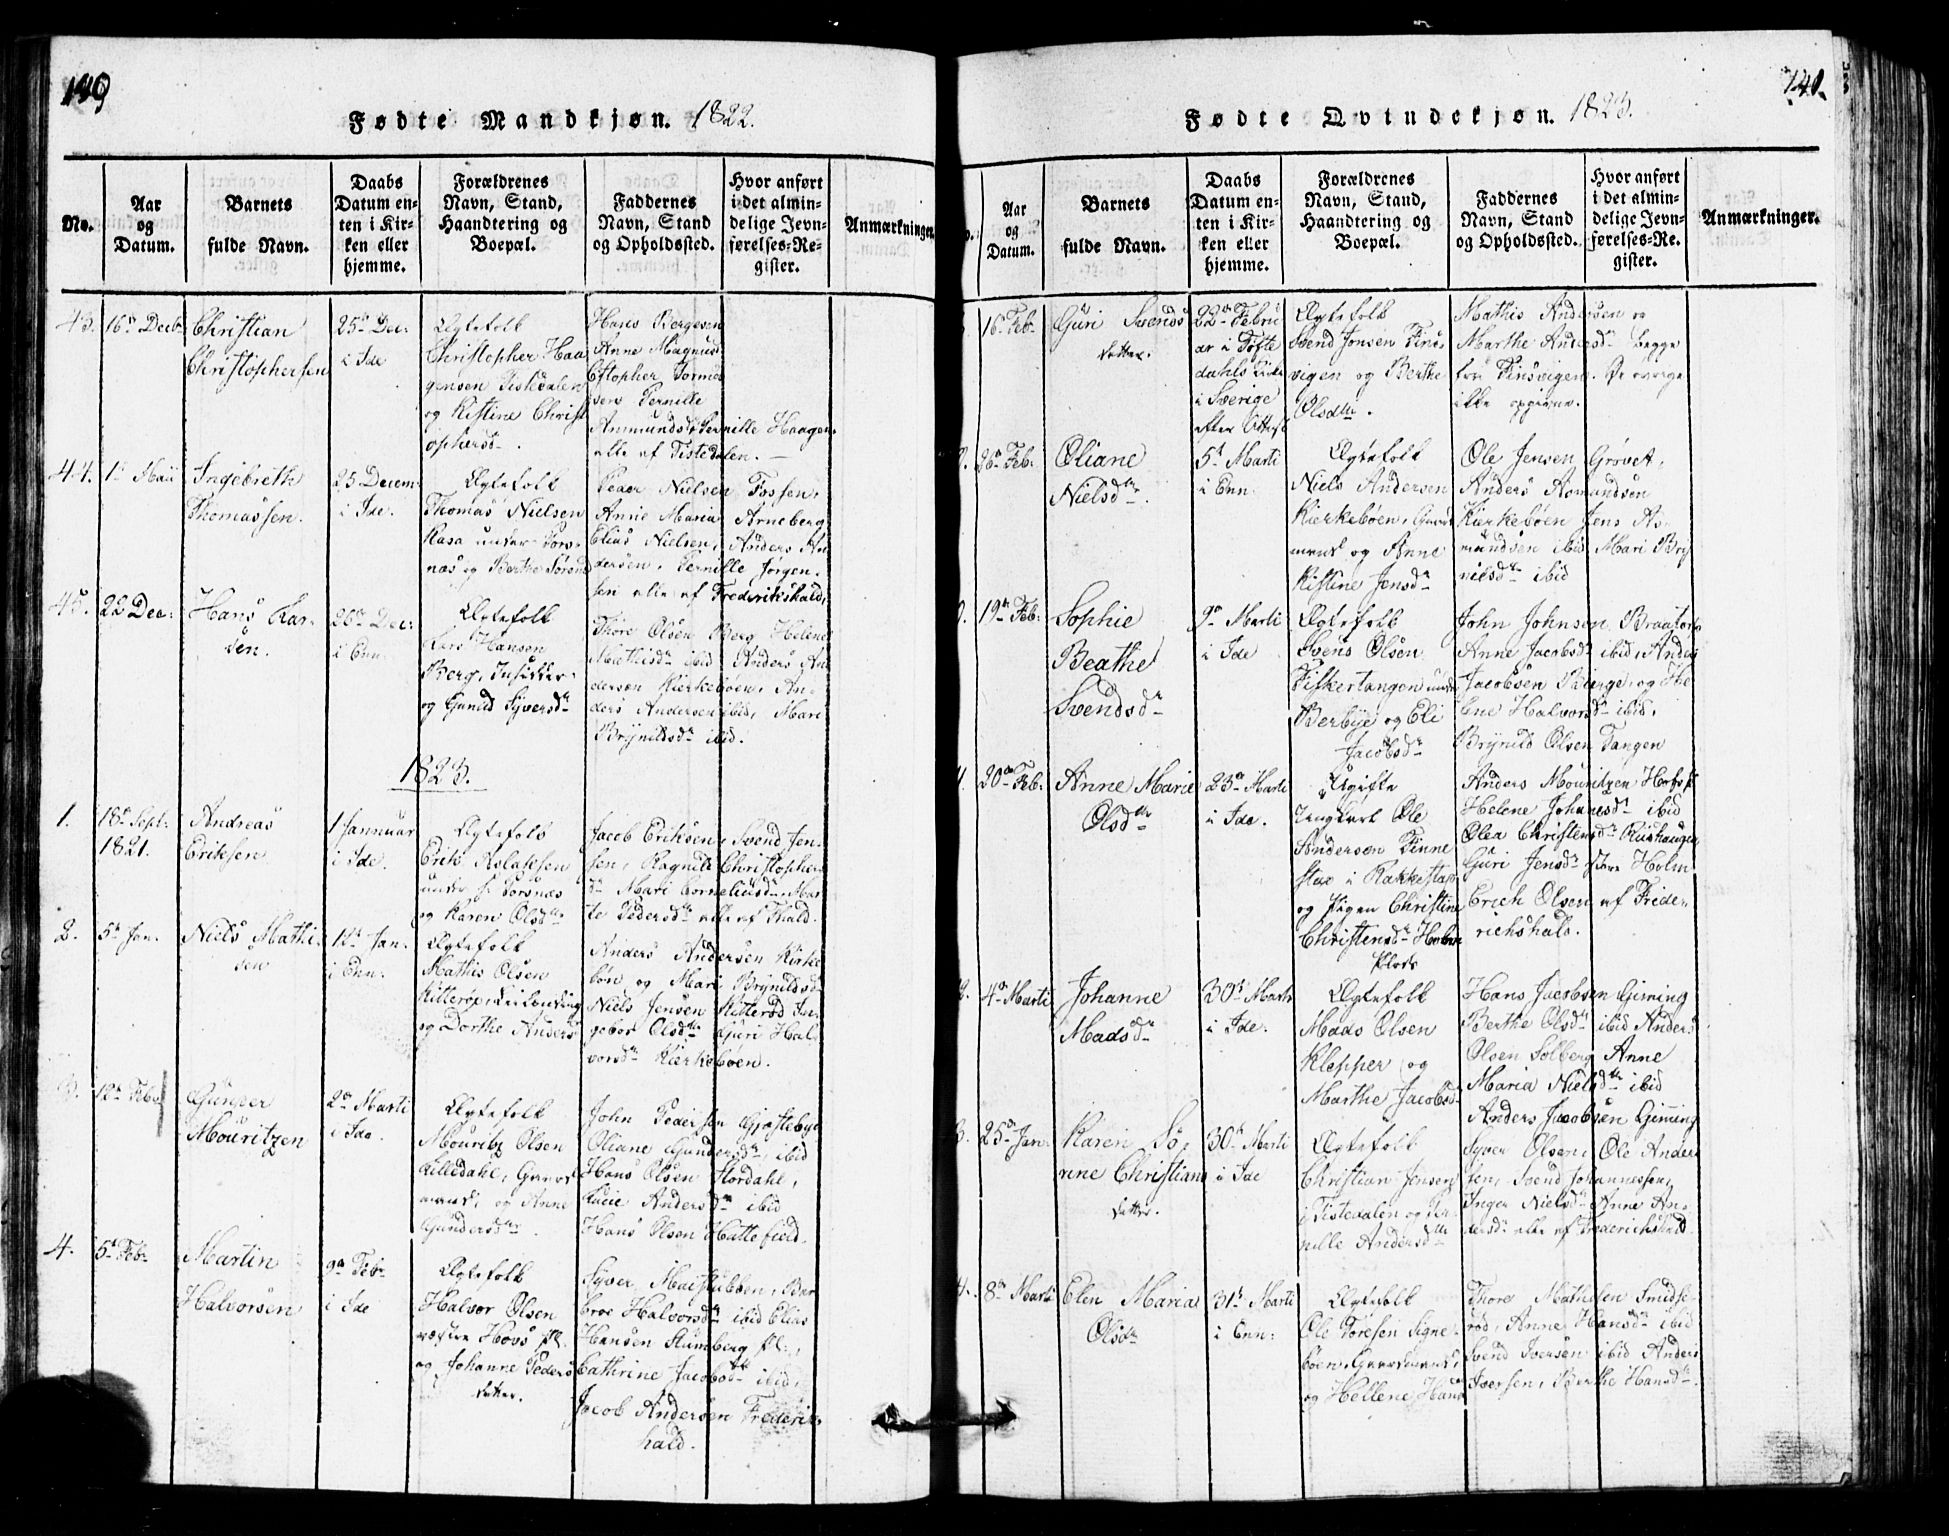 Fødte Mandkjøn. 1822.
No.
Aar
og
Datum.
Barnets
fulde Navn.
Daabs
Datum en-
ten i Kir-
ken eller
hjemme.
Forældrenes
Navn, Stand,
Haandtering og
Boepæl.
Faddernes
Navn, Stand
og Opholdssted.
Hvor anført
i det almin-
delige Jevn-
førelses-Re-
gister.
Anmærkninger.
43.
16de Decb
Christian
Christophersen
25de Dec:
i Ide
Ægtefolk
Christopher Haa
gensen Tistedalen
og Kistine Christ
ophersd
Hans Bergesen
Anne Magnusd
Anmundsd, Pernille Haagen
alle af Tistedalen.
44.
1 Maii
Ingebreth
Thomassen.
25 Decem
i Ide.
Ægtefolk
Thomas Nielsen
Rasa under Tors-
næs og Berthe
Peder Nielsen Fossen,
Anne Maria Arneberg
Elias Nielsen, Anders An
dersen, Pernille Jørgen-
sen alle af Frederikshald,
45.
22 Dec:
Hans Lar-
sen.
26de Dec:
i Enn
Ægtefolk
Lars Hansen
Berg, Inderster
og Gunild Syversdr
Thore Olsen Berg, Helene
Mathisdr ibid Anders An
dersen Kierkebøen, An-
ders Andersen ibid, Mari
Brynildsdr ibid.
1823.
1.
18de Sept:
1821.
Andreas
Eriksen
1 Jannuar
i Ide.
Ægtefolk
Erik Aslaksen
under Torsnæs
og Karen Olsdtr
Jacob Eriksen, Svend Jen-
sen, Ragnild Christopher
dr Mari Corneliusdr Mar
te Pedersdr alle af Fhald.
2.
5te Jan.
Niels Mathi-
sen
12te Jan:
i Enn:
Ægtefolk
Mathis Olsen
og Dorthe Andersd
Anders Andersen Kirke
bøn og Mari Brynildsd
Niels Jensen Kitterød In-
gebor Olsdtr Guri Hal
vorsdr Kierkebøen.
3.
12te Feb
Gunder
Mouritzen
2de Marti
i Ide.
Ægtefolk
Mouritz Olsen
Lilledahl, Gaard
mand, og Anne
Gundersdtr
John Pedersen Gjæstebye
Oliane Gundersdr ibid
Hans Olsen Stordahl,
Lucie Andersdr ibid
Hans Olsen Hattefield.
4.
5te Feb
Martin
Halvorsen
9de Febr
i Ide
Ægtefolk
Halvor Olsen
Hovs Pl.
og Johanne Peders
datter.
Syver Bar
broe Halvorsdr ibid Elias
Hansen Rumberg Pl:,
Cathrine Jacobsdr ibid,
Jacob Andersen Frederik-
hald.
141.
Fødte Qvindekjøn. 1823.
Aar
og
Datum.
Barnets
fulde Navn.
Daabs
Datum en-
ten i Kir-
ken eller
hjemme.
Forældrenes
Navn, Stand,
Haandtering og
Boepæl.
Faddernes
Navn, Stand
og Opholdssted.
Hvor anført
i det almin-
delige Jevn-
førelses-Re-
gister.
Anmærkninger.
16de Feb.
Guri Svends
datter.
22de Febru
ar i Tofte
dahls Kirke
i Sverige
efter Attest
Ægtefolk
Svend Jonsen Fins-
vigen og Berthe
Olsdtr.
Mathis Andersen og
Marthe Andersd begge
fra Finsvigen. De øvrige
ikke opgivne.
26de Feb:
Oliane
Nielsdtr.
5te Marti
i Enn.
Ægtefolk
Niels Andersen
Kierkebøen, Gaard
mand og Anne
Kistine Jensdr
Ole Jensen Grovet,
Anders Asmundsen
Kierkebøen Jens As-
mundsen ibid Mari Bry
nildsdr ibid
19de Feb:
Sophie
Beathe
Svendsdr
9de Marti
i Ide
Ægtefolk
Svend Olsen
Fiskertangen under
Berbye og Eli
Jacobsdr
John Johnsen
Anne Jacobsdr ibid, Anders
Jacobsen og He
lene Halvorsdr ibid,
Brynild Olsen Tangen
20de Feb.
Anne Marie
Olsdtr
23de Marti
i Ide.
Uægte
Ungkarl Ole
Andersen Finne
stad i Rakkestad
og Pigen Christine
Christensdr
Plads
Anders Mouritzen
Helene Johanesdr ibid
Olea Christensdr
Guri Jensdr store Holm
Erich Olsen af Frede-
richshald.
4de Marti
Johanne
Madsdr
30te Marti
i Ide.
Ægtefolk
Mads Olsen
Klepper og
Marthe Jacobsd
Hans Jacobsen Gjeming
Berthe Olsdr ibid Anders
Olsen Solberg Anne
Maria Nielsdtr ibid
Anders Jacobsen Gjeming
25de Jan:
Karen So-
rine Christians
datter.
30te Marti
i Ide
Ægtefolk
Christian Jensen
i Tistedalen og Per
nille Andersdtr
Syver Olsen, Ole Ander
sen, Svend Johannessen,
Inger Nielsdr Anne An-
dersdr alle af Frederichshald
8de Marti
Elen Maria
Olsdr
31te Marti
i Enn:
Ægtefolk
Ole Toresen Signe-
bøen, Gaardmand,
og Hellene Hansd
Thore Mathesen Smids-
rød, Anne Hansdr ibid
Svend Iversen ibid Anders
Iversen, Berthe Hansdr.